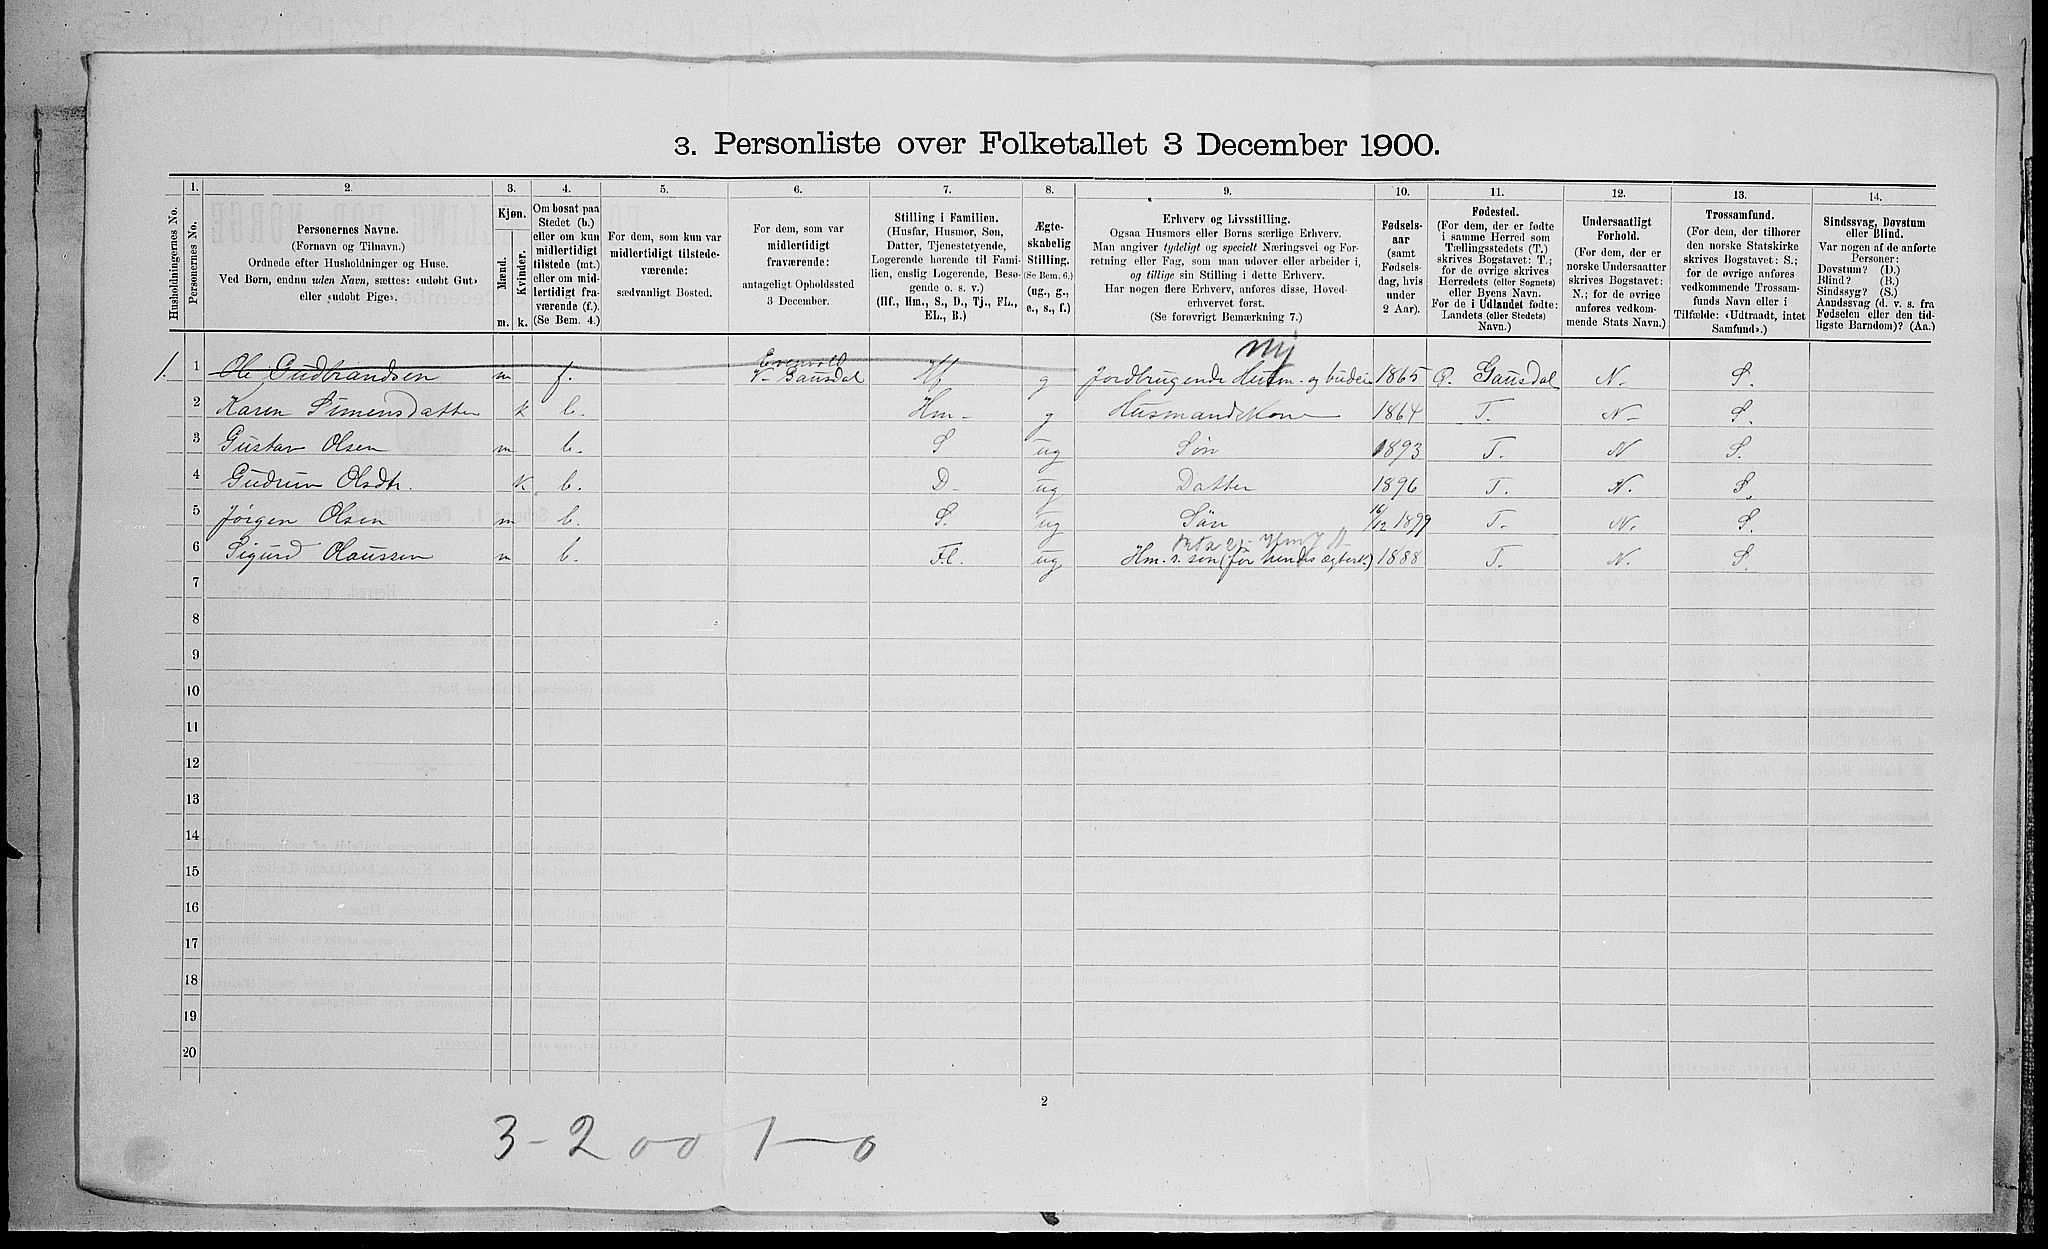 3. Personliste over Folketallet 3 December 1900.
Husholdningernes No.
1. Personernes No.
2. Personernes Navne. (Fornavn og Tilnavn.) Ordnede efter Husholdninger og Huse. Ved Børn, endnu uden Navn, sættes: «udøbt Gut» eller «udøbt Pige».
3. Kjøn. Mænd. m. Kvinder. k.
4. Om bosat paa Stedet (b.) eller om kun midlertidigt tilstede (mt.) eller om midlertidigt fraværende (f.). (Se Bem. 4.)
5. For dem, som kun var midlertidigt tilstedeværende: sædvanligt Bosted.
6. For dem, som var midlertidigt fraværende: antageligt Opholdssted 3 December.
7. Stilling i Familien. (Husfar, Husmor, Søn, Datter, Tjenestetyende, Logerende hørende til Familien, enslig Logerende, Besøgende o. s. v.) (Hf., Hm., S., D., Tj., FL., EL., B.)
8. Ægteskabelig Stilling. (Se Bem. 6.) (ug., g., e., s., f.)
9. Erhverv og Livsstilling. Ogsaa Husmors eller Børns særlige Erhverv. Man angiver tydeligt og specielt Næringsvei og Forretning eller Fag, som man udøver eller arbeider i, og tillige sin Stilling i dette Erhverv. Har nogen flere Erhverv, anføres disse, Hovederhvervet først. (Se forøvrigt Bemærkning 7.)
10. Fødselsaar (samt Fødselsdag, hvis under 2 Aar).
11. Fødested. (For dem, der er fødte i samme Herred som Tællingsstedets (T.) skrives Bogstavet: T.; for de øvrige skrives Herredets (eller Sognets) eller Byens Navn. For de i Udlandet fødte: Landets (eller Stedets) Navn.)
12. Undersaatligt Forhold. (For dem, der er norske Undersaatter skrives Bogstavet: N.; for de øvrige anføres vedkommende Stats Navn.)
13. Trossamfund. (For dem, der tilhører den norske Statskirke skrives Bogstavet: S.; for de øvrige anføres vedkommende Trossamfunds Navn eller i Tilfælde: «Udtraadt, intet Samfund».)
14. Sindssvag, Døvstum eller Blind. Var nogen af de anførte Personer: Døvstum? (D.) Blind? (B.) Sindssyg? (S.) Aandssvag (d. v. s. fra Fødselen eller den tidligste Barndom)? (Aa.)
1. 1 Ole Gudbrandsen m f. V. Gausdal Hf g Jordbrugende Husm. 1865 Ø. Gausdal N. S.
2 Karen Simensdatter k b. Hm. g Husmandskone 1864 T. N. S.
3 Gustav Olsen m b. S ug Søn 1893 T. N S.
4 Gudrun Olsdtr. k. b. D. ug Datter 1896 T. N. S.
5 Jørgen Olsen m b. S. ug Søn 16/12 1899 T. N. S.
6 Sigurd Olaussen m b. F.L. ug Hm. s. søn (før hendes ægtesk.) 1888 T. N. S.
7
8
9
10
11
12
13
14
15
16
17
18
19
20
2
3-2 00 1-0